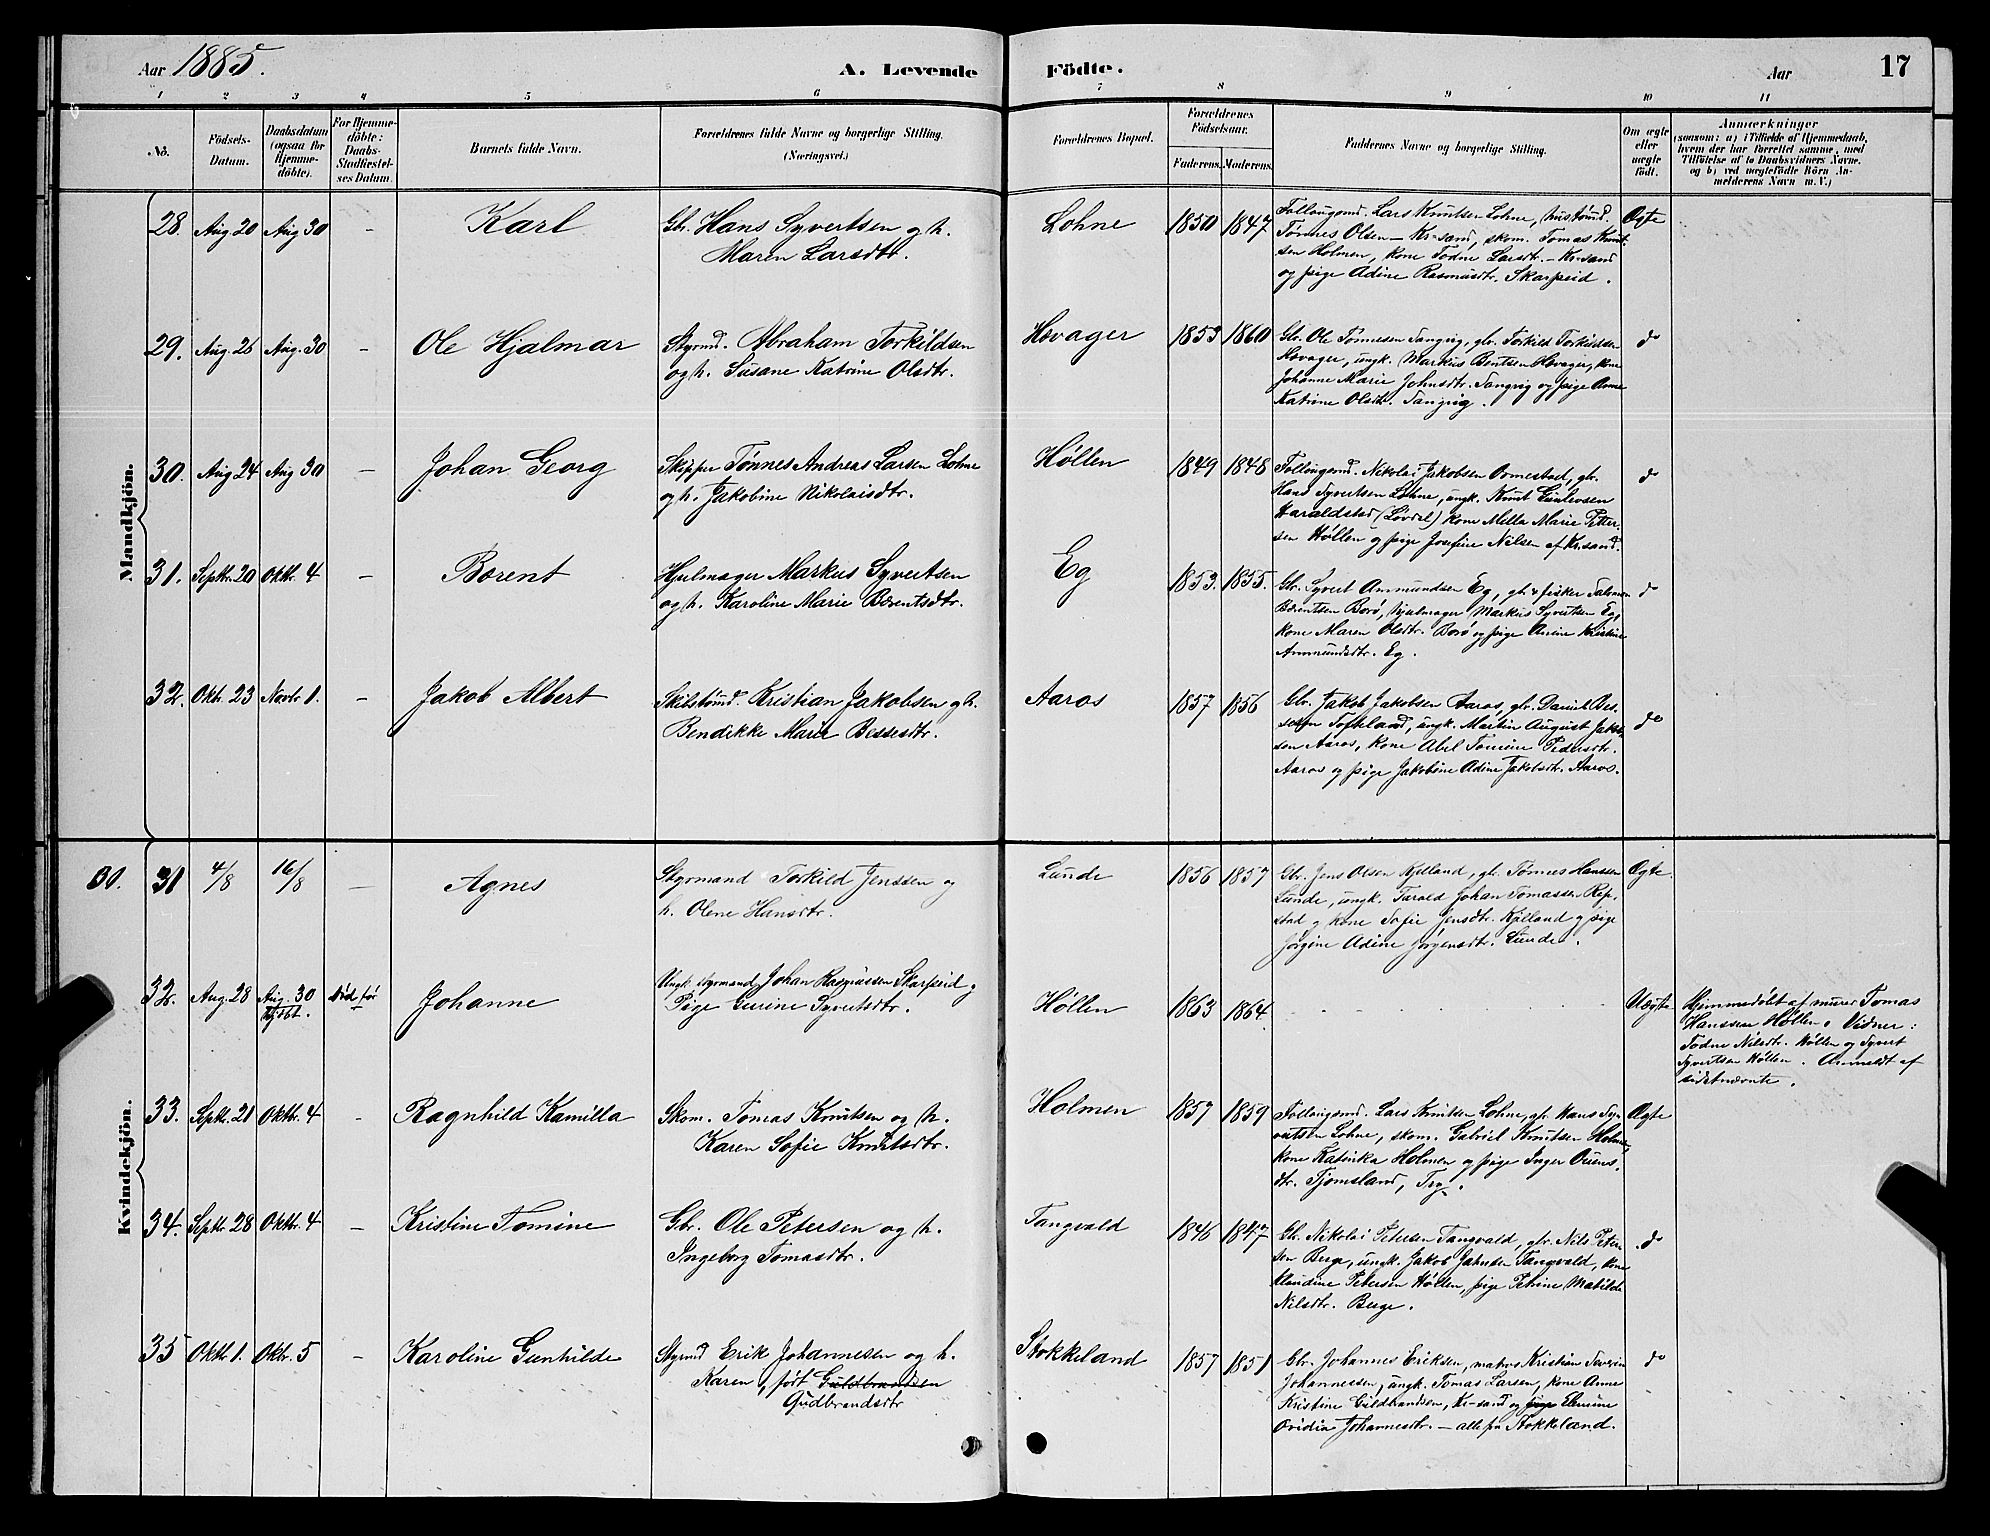 Aar 1885.
A. Levende Födte.
Aar
17
1 2 3 4 5 6 7 8 9 10 11
No.
Födsels-Datum.
Daabsdatum (ogsaa for Hjemme-döbte).
For Hjemme-döbte: Daabs-Stadfæstel-ses Datum.
Barnets fulde Navn.
Forældrenes fulde Navne og borgerlige Stilling. (Næringsvei.)
Forældrenes Bopæl.
Forældrenes Födselsaar.
Faderens. Moderens.
Faddernes Navne og borgerlige Stilling.
Om ægte eller uægte födt.
Anmærkninger
(saasom: a) i Tilfælde af Hjemmedaab,
hvem der har forrettet samme, med
Tilföielse af to Daabsvidners Navne.
og b) ved uægtefödte Börn An-
melderens Navn m. V.)
Mandkjön.
28. Aug 20 Aug 30 - Karl
Gbr. Hans Syvertsen og h.
Maren Larsdtr.
Lohne 1850 1847
Følloungsmd. Lars Knutsen Lohne, husbund.
Tønnes Olsen - Kr-sand, skom. Tomas Knut-
sen Holmen, kone Todne Larsdtr. - Kr-sand
og pige Adine Rasmusdtr. Skarpeid.
Ægte
29. Aug. 26 Aug. 30 - Ole Hjalmar
Styrmd. Abraham Torkildsen
og h. Susane Katrine Olsdtr.
Hovager 1853 1860
Gbr. Ole Tønnesen Tangvig, gbr. Torkild Torkildsen
Hovager, ungk. Markus Bentsen Hovager, kone
Johanne Marie Johnsdtr. Tangvig og pige Anne
Katrine Olsdtr. Tangvig.
do
30. Aug 24 Aug 30 - Johan Georg
Skipper Tønnes Andreas Larsen Lohne
og h. Jakobine Nikolaisdtr.
Høllen 1849 1848
Nikolai Jakobsen Ormestad, gbr.
Hans Syvertsen Lohne, ungk. Knut Gunlevsen
Haraldstad (Løvdal) kone Mella Marie Peter-
sen Høllen og pige Josefine Nilsen af Kr.sand.
do
31. Septr. 20 Oktr. 4 - Børent
Hjulmager Markus Syvertsen
og h. Karoline Marie Børentsdtr.
Eg 1853. 1855.
Gbr. Syvert Anmundsen Eg, gbr. & fisker Salomon
Børentsen Borø, hjulmager Markus Syvertsen Eg,
kone Maren Olsdtr. Borø og pige Anine Kristine
Anmundsdtr. Eg.
do
32. Okt. 23 Novbr 1. - Jakob Albert
Skibstømd. Kristian Jakobsen og h.
Bendikke Marie Bessesdtr.
Aaros 1857 1856
Gbr. Jakob Jakobsen Aaros, gbr. Daniel Bes-
sesen Tofteland, ungk. Martin August Jakob-
sen Aaros, kone Abel Tomine Pedersdtr.
Aaros og pige Jakobine Adine Jakobsdtr. Aaros.
do
Kvindekjön.
30. 31 4/8 16/8 - Agnes
Styrmand Torkild Jenssen og
h. Olene Hansdtr.
Lunde 1856 1857
Gbr. Jens Olsen Kjelland, gbr. Tønnes Hanssen
Lunde, ungk. Tarald Johan Tomassen Rep-
stad og kone Sofie Jensdtr. Kjelland og pige
Jørgine Adine Jørgensdtr. Lunde.
Ægte
32. Aug. 28 Aug. 30 hjdbt. død før Johanne
Ungk. styrmand Johan Rasmussen Skarpeid og
Pige Gurine Syvertsdtr.
Høllen 1863 1864.
Uægte
Hjemmedøbt af murer Tomas
Hanssen Høllen. Vidner:
Todne Nilsdtr. Høllen og Syvert
Syvertsen Høllen. Anmeldt af
sidstnævnte.
33. Septr. 21 Oktbr. 4 - Ragnhild Kamilla
Skom. Tomas Knutsen og h.
Karen Sofie Knutsdtr.
Holmen 1857 1859
Lars Knutsen Lohne, gbr. Hans Sy-
vertsen Lohne, skom. Gabriel Knutsen Holmen,
kone Katinka Holmen og pige Inger Ouens-
dtr. Tjomsland, Try.
Ægte
34. Septr. 28 Oktbr. 4 - Kristine Tomine
Gbr. Ole Petersen og h.
Ingeborg Tomasdtr.
Tangvald 1846 1847
Gbr. Nikolai Petersen Tangvald, gbr. Nils Peter-
sen Berge, ungk. Jakob Jahnsen Tangvald, kone
Klaudine Petersen Høllen, pige Petrine Matilde
Nilsdtr. Berge.
do
35 Oktr. 1. Oktr. 5 - Karoline Gunhilde
Styrmd Erik Johannesen og h.
Karen, født Guldbrandsen
Gudbrandsdtr
Stokkeland 1857 1851
Gbr. Johannes Eriksen, matros Kristian Severin
Johannessen, ungk. Tomas Larsen, kone Anne
Kristine Guldbrandsen, Kr-sand og pige Elenine
Ovidia Johannesdtr. - alle fra Stokkeland.
do